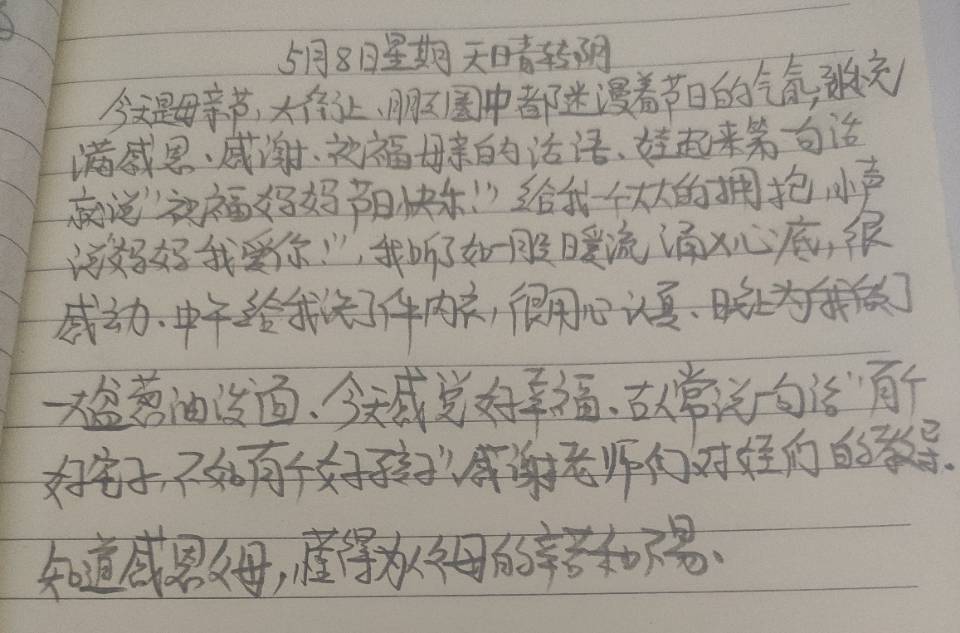 5月8日星期天日晴转阴
今天是母亲节,大街上、朋友圈中都迷漫着节日的气氛,充
满感恩、感谢、祝福母亲的话语、娃起来第一句话
就说"祝福妈妈节日快乐!"给我一个大大的拥抱,小声
说"妈妈我爱你!",我听了如一股暖流涌入心底,很
感动、中午给我洗了件内衣,很用心认真、晚上为我做了
一大盆葱油泼面、今天感觉好幸福、古人常说一句话"有个
好宅子,不如有个好孩子"感谢老师们对娃们的教导.
知道感恩父母,懂得为人父母的辛苦和不易、